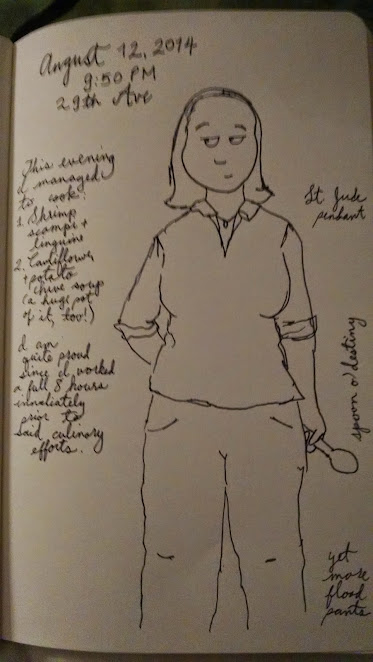 August 12, 2014
9:50 PM
29th Ave
This evening
I managed
to cook:
1. Shrimp
scampi +
linguine
2. Cauliflower
+ potato
chive soup
(a huge pot
of it, too!)
I am
quite proud
since I worked
a full 8 hours
immediately
prior to
said culinary
efforts.
St Jude
pendant
spoon o' destiny
yet
more
flood
pants